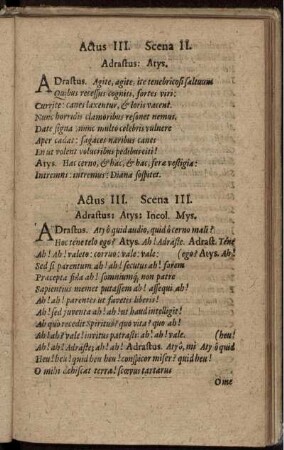 Actus III. Scena II.
Adrastus: Atys.
ADrastus. Agite, agite, ite tenebricosi saltuum
Quibus recessus cogniti, fortes viri:
Currite: canes laxentur, & loris vacent.
Nunc horridis clamoribus resonet nemus.
Date signa: nunc multo celebris vulnere
Aper cadat: sagaces naribus canes
En ut volent volucribus pedibus citi!
Atys. Hac cerno, & hac, & hac, feræ vestigia:
Intremus: intremus: Diana sospitet.
Actus III. Scena III.
Adrastus: Atys: Incol. Mys.
ADrastus. Atyô quid audio, quid ô cerno mali?
Hac tene telo ego? Atys. Ah! Adraste. Adrast. Tene
Ah! Ah! valeto: corruo: vale: vale: (ego? Atys. Ah!
Sed si parentum ah! ah! secutus ah! forem
Præcepta fida ah! somniumq́, non patra
Sapientius memet putassem ah! assequi ah!
Ah! ah! parentes ut favetis liberis!
Ah! sed juventa ah! ah! ut haud intelligit!
Ah quò recedit Spiritus? quò vita? quò ah!
Ah! ah! vale! invitus patrasti: ah! ah! vale. (heu!
Ah! ah! Adraste; ah! ah! Adrastus. Atyô, mi Aty ô quid
Heu! heu! quid heu heu! conspicor miser? quid heu!
O mihi dehiscat terra! scævus tartarus
O me